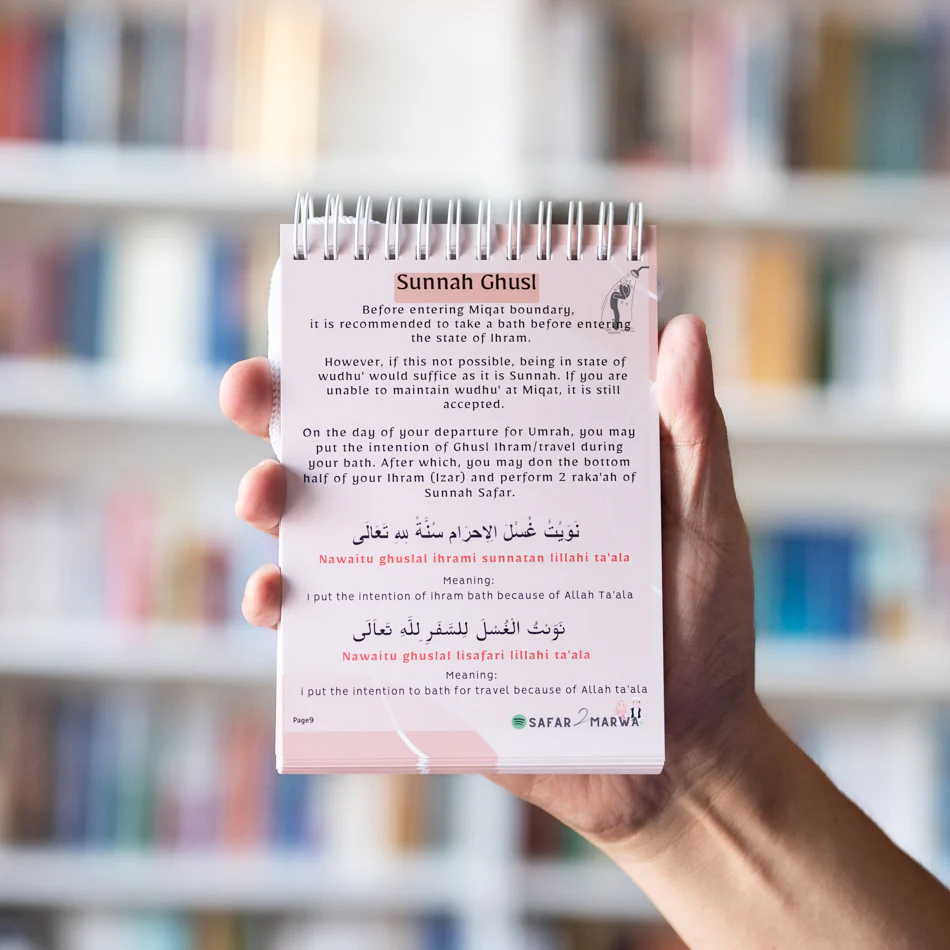 Sunnah Ghusl
Before entering Miqat boundary,
it is recommended to take a bath before entering
the state of Ihram.
However, if this not possible, being in state of
wudhu' would suffice as it is Sunnah. If you are
unable to maintain wudhu' at Miqat, it is still
accepted.
On the day of your departure for Umrah, you may
put the intention of Ghusl Ihram/travel during
your bath. After which, you may don the bottom
half of your Ihram (Izar) and perform 2 raka'ah of
Sunnah Safar.
نَوَيْتُ غُسْلَ الِاحرَام سُنَّةً لِلهِ تَعَالَى
Nawaitu ghuslal ihrami sunnatan lillahi ta'ala
Meaning:
I put the intention of ihram bath because of Allah Ta'ala
نَوَيْتُ الْغُسْلَ لِلسَّفَرِ لِلَّهِ تَعَالَى
Nawaitu ghuslal lisafari lillahi ta'ala
Meaning:
i put the intention to bath for travel because of Allah ta'ala
Page9
SAFAR 2 MARWA